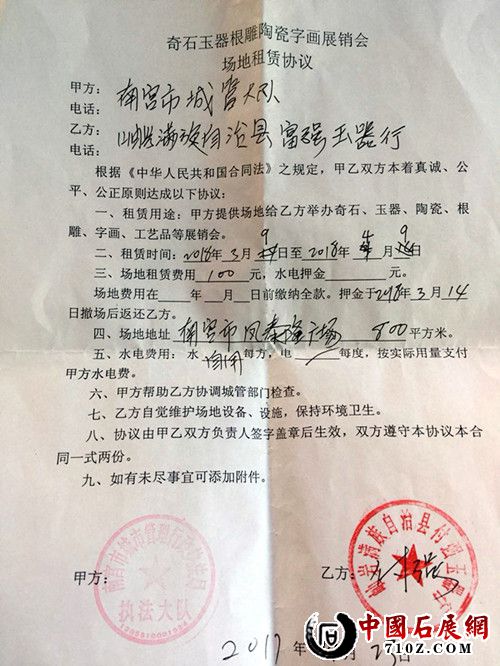 奇石玉器根雕陶瓷字画展销会
场地租赁协议
甲方: 南宫市城管大队
电话:
乙方: 满族自治县富强玉器行
电话:
根据《中华人民共和国合同法》之规定,甲乙双方本着真诚、公
平、公正原则达成以下协议:
一、租赁用途:甲方提供场地给乙方举办奇石、玉器、陶瓷、根
雕、字画、工艺品等展销会。
二、租赁时间:2018年3月9日至2018年 月9日
三、场地租赁费用 100 元,水电押金 元。
场地费用在 年 月 日前缴纳全款。押金于2018年3月14
日撤场后返还乙方。
四、场地地址 南宫市凤 广场 800平方米。
五、水电费用:水 每方,电 每度,按实际用量支付
甲方水电费。
六、甲方帮助乙方协调城管部门检查。
七、乙方自觉维护场地设备、设施,保持环境卫生。
八、协议由甲乙双方负责人签字盖章后生效,双方遵守本协议本合
同一式两份。
九、如有未尽事宜可添加附件。
执法大队
甲方:
满族自治县付强玉器
乙方:
2017年 月 日
中國石展網
71OZ.COM